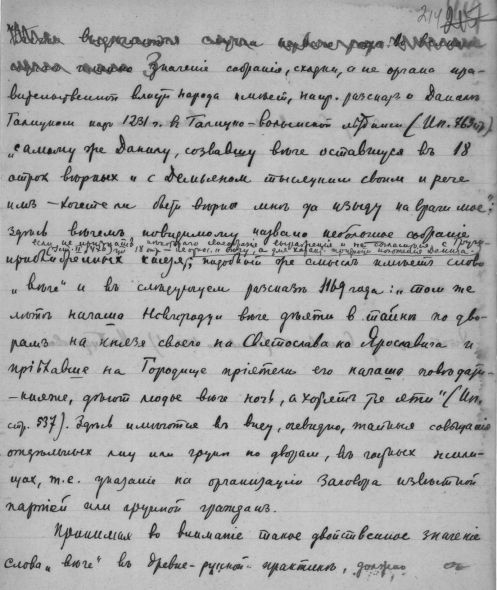 214
Значенiе собранiя, сходки, а не органа пра-
вительственной власти народа имѣетъ, напр. разсказъ о Данiилѣ
Галицкомъ подъ 1231 г. въ Галицко-Волынской лѣтописи (Ип. 763 стр.)
"самому же Данилу, созвавшу вѣче оставшуся въ 18
отрок вѣрныхъ и с Демьяном тысяцким своим и рече
имъ – хочете ли быти вѣрни мнѣ да изыду на враги мое?"
Здѣсь вѣчемъ повидимому названо небольшое собранiе
приближенныхъ князя; подобный же смыслъ имѣетъ слово
"вѣче" и въ слѣдующемъ разсказѣ 1169 года: "том же
лѣтѣ начаша Новгородци вѣче дѣяти в тайнѣ по дво-
рамъ на князя своего на Святослава на Ярославича и
прiѣхавше на Городище прiятели его начаша повѣдати
– княже, дѣють людье вѣче ночь, а хотять тя яти" (Ип.
стр. 537). Здѣсь имѣются въ виду, очевидно, тайныя совѣщанiя
отдѣльныхъ лиц или групп по дворам, въ частныхъ жили-
щахъ, т.е. указанiе на организацiю заговора извѣстной
партiей или группой гражданъ.
Принимая во вниманiе такое двойственное значенiе
слова "вѣче" въ древне-русской практикѣ, должно